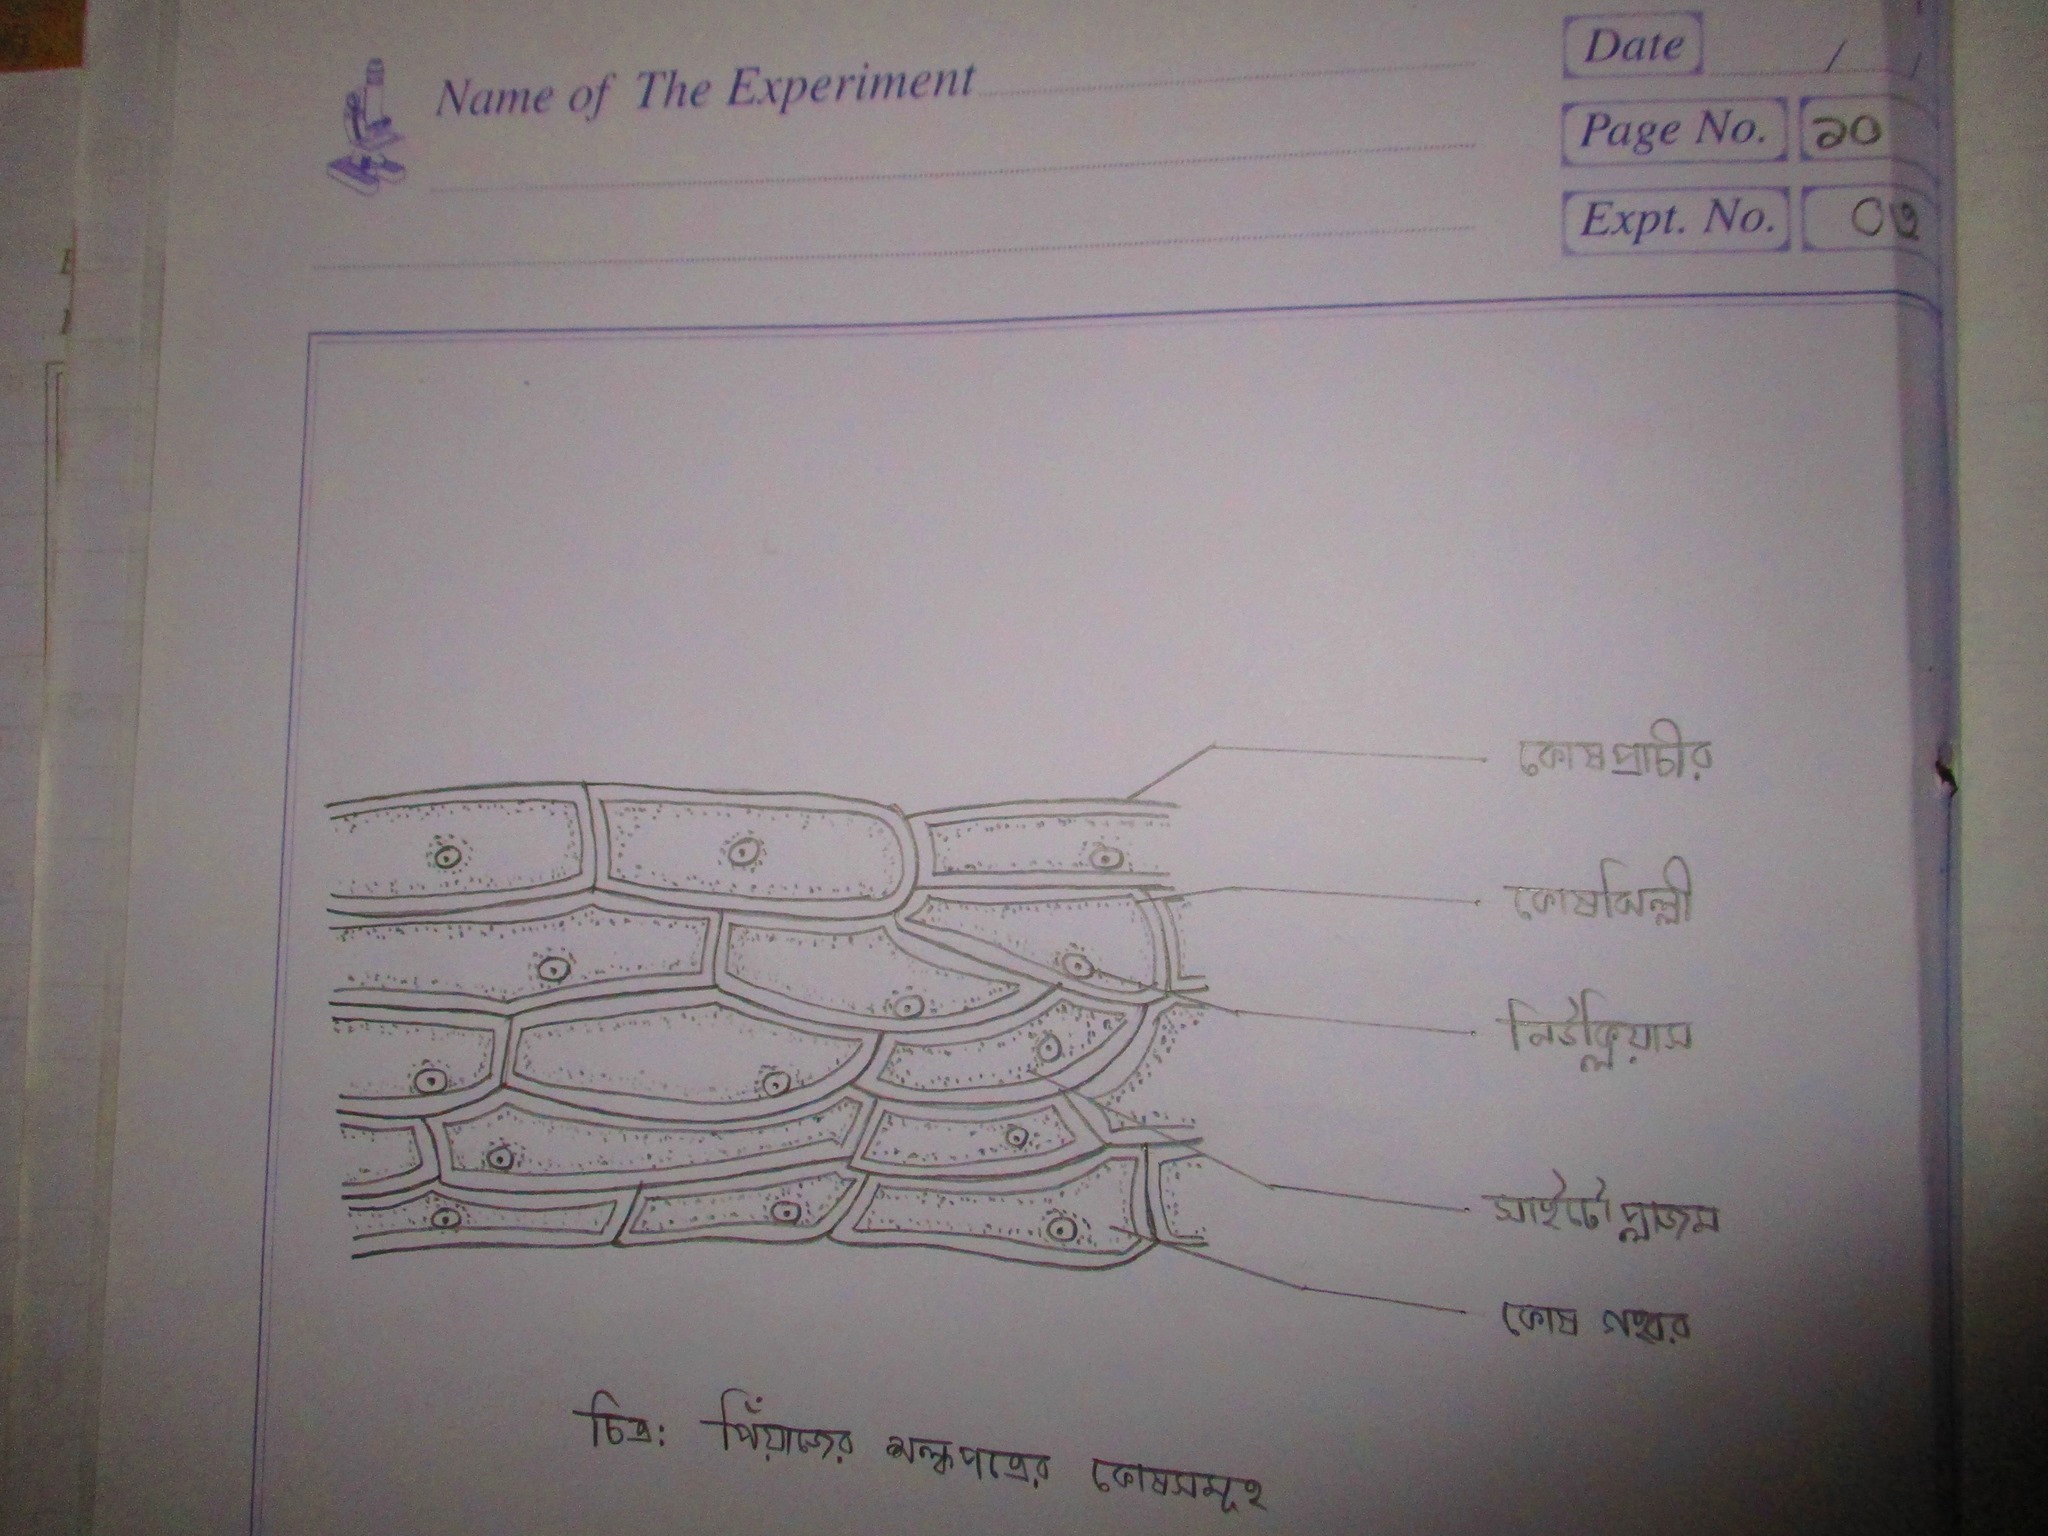 Name of The Experiment
Date / /
Page No. ১০
Expt. No. ০৩
কোষপ্রাচীর
কোষঝিল্লী
নিউক্লিয়াস
সাইটোপ্লাজম
কোষ গহ্বর
চিত্র: পিঁয়াজের শল্কপত্রের কোষসমূহ